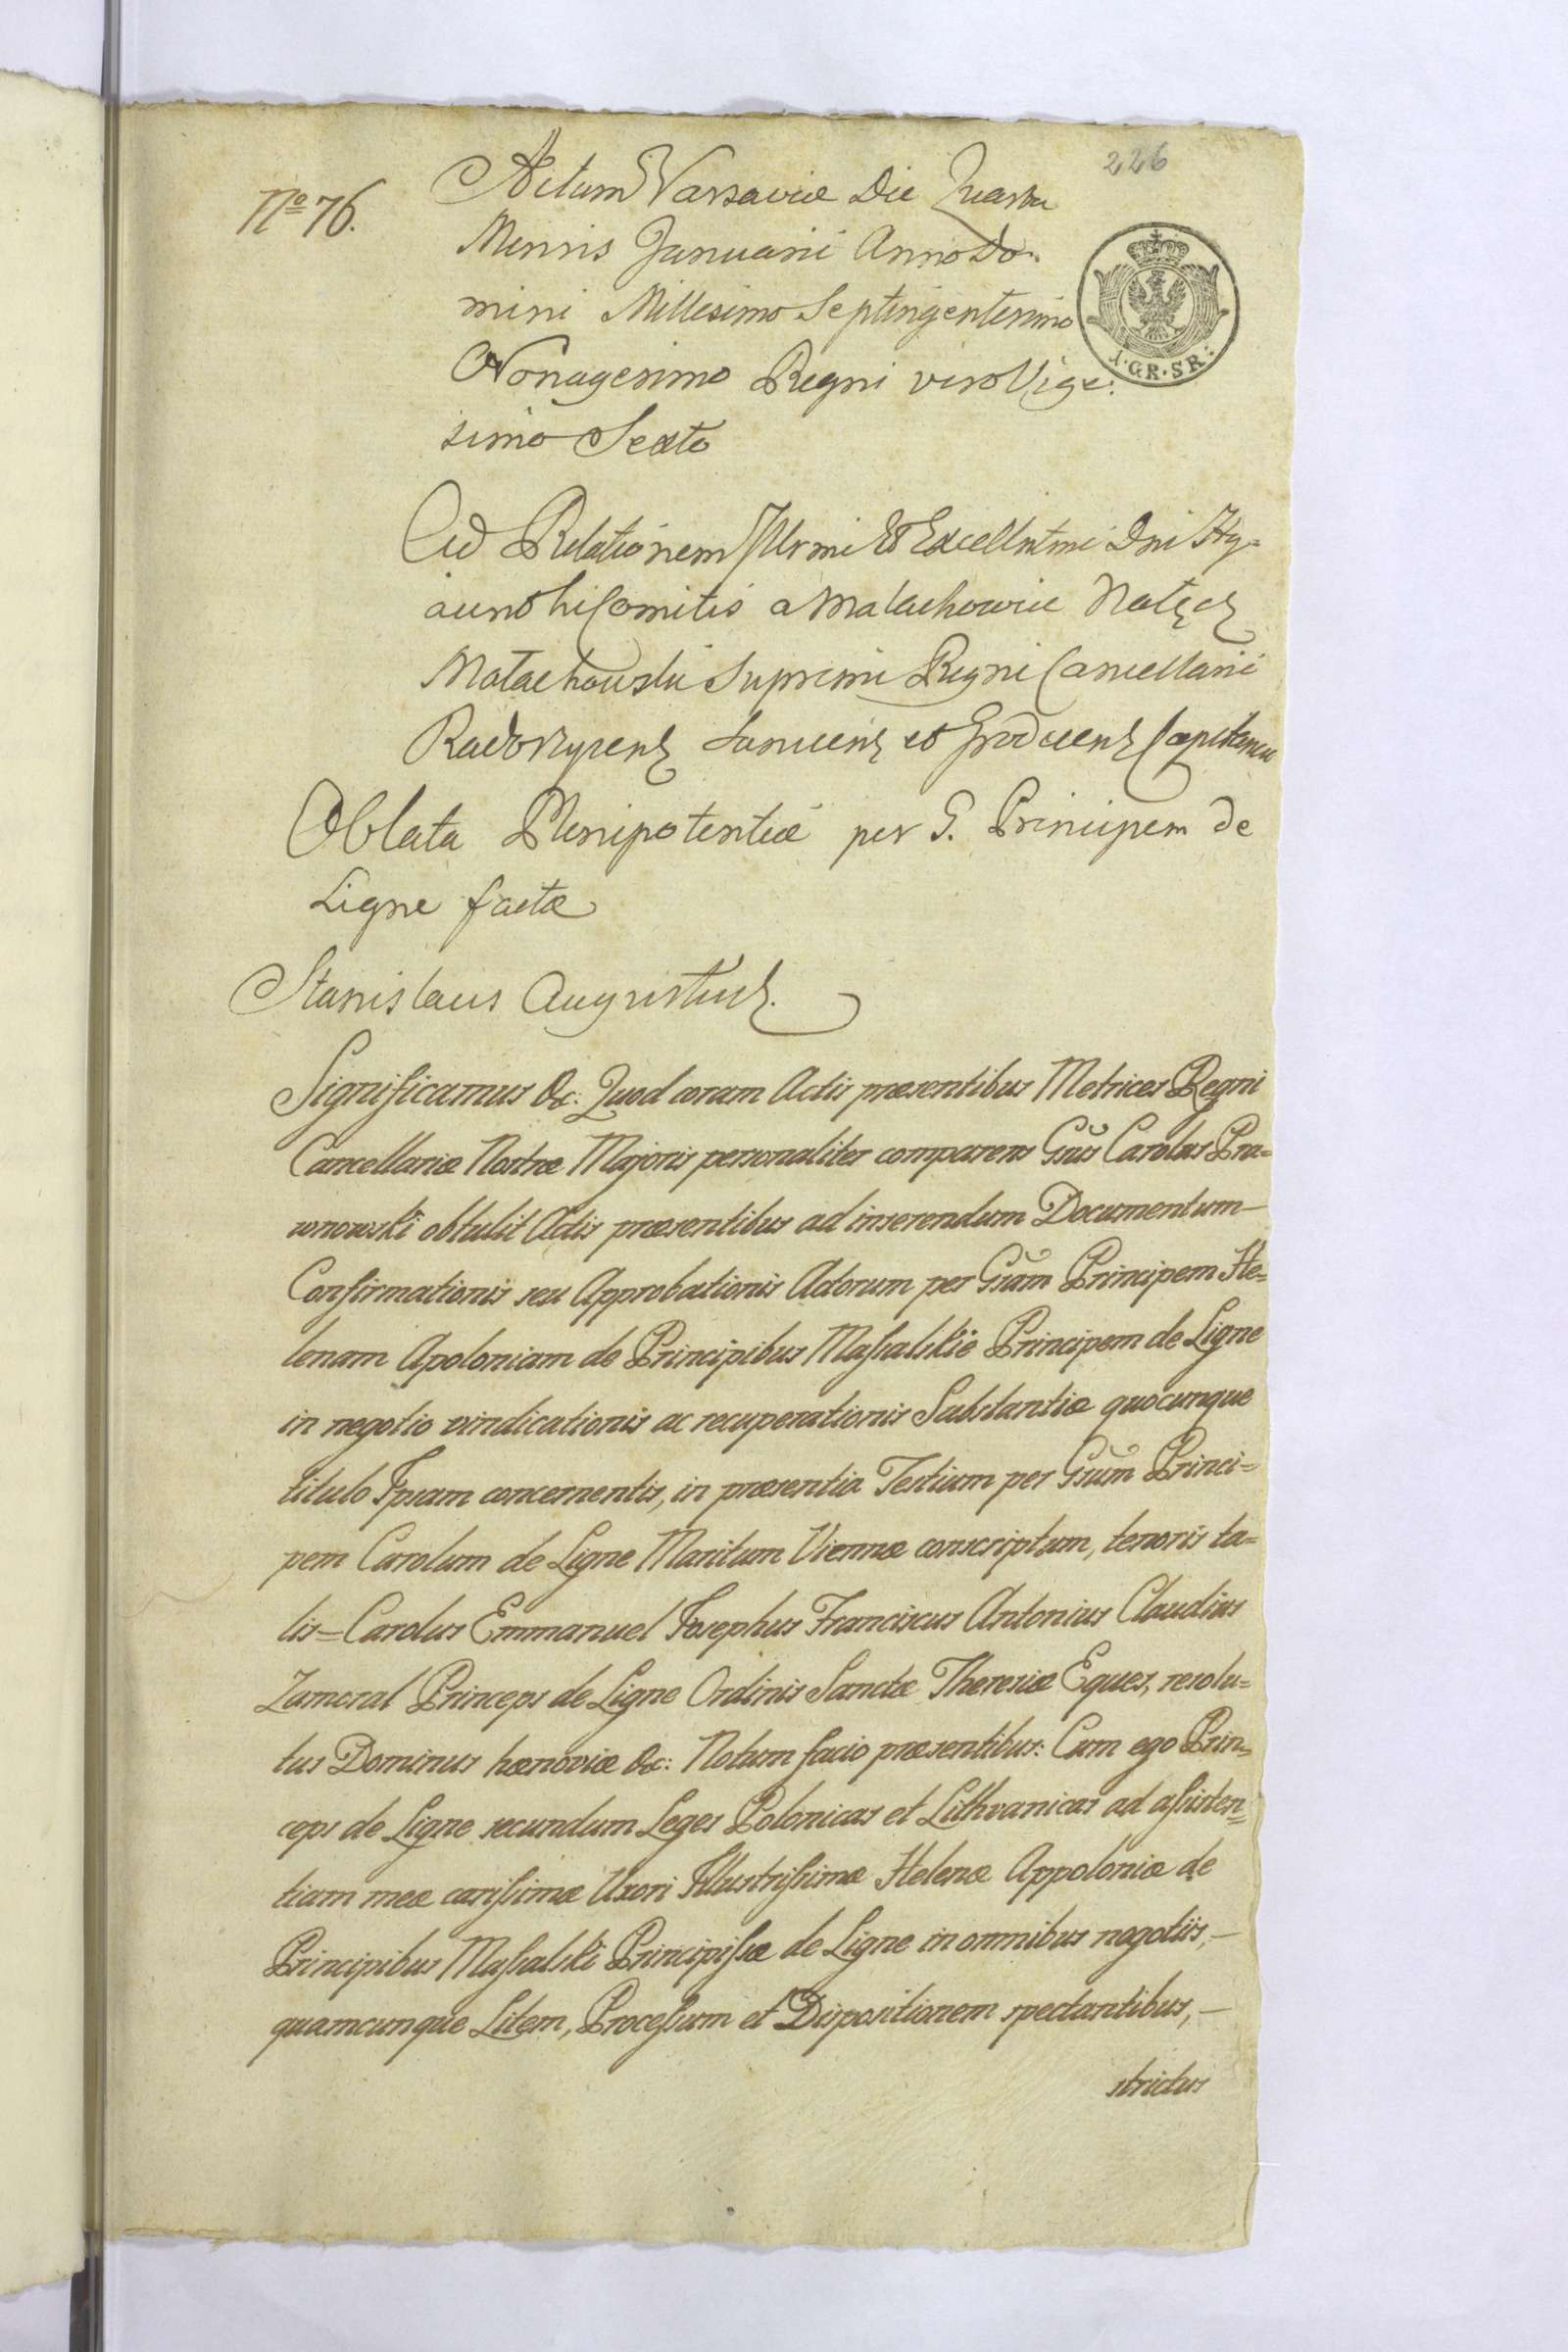 226
Nº 76.
Actum Varsaviæ Die Quarta
Mensis Januarii Anno Do-
mini Millesimo Septingentesimo
Nonagesimo Regni vero Vige-
simo Sexto
1·GR·SR:
Ad Relationem Illrmi Et Excellntmi Dni Hy-
acinthi Comitis a Małachowice Nałęcz
Małachowski Supremi Regni Cancellarii
Radoszycens et Capitanei
Oblata Plenipotentiæ per G. Principem de
Ligne factæ
Stanislaus Augustus.
Significamus &c: Quod coram Actis præsentibus Metrices Regni
Cancellariæ Nostræ Majoris personaliter comparens Gnus Carolus Pra=
wnowski obtulit Actis præsentibus ad inserendum Documentum
Confirmationis seu Approbationis Actorum per Gnam Principem He=
lenam Apoloniam de Principibus Massalskie Principem de Ligne
in negotio vindicationis ac recuperationis Substantiæ quocunque
titulo Ipsam concernentis, in præsentia Testium per Gnum Princi=
pem Carolum de Ligne Maritum Viennæ conscriptum, tenoris ta=
lis = Carolus Emmanuel Josephus Franciscus Antonius Claudius
Lamoral Princeps de Ligne Ordinis Sanctæ Theresiæ Eques, resolu=
tus Dominus hænoviæ &c: Notum facio præsentibus: Cum ego Prin=
ceps de Ligne secundum Leges Polonicas et Lithvanicas ad assisten=
tiam meæ carissimæ Uxori Illustrissimæ Helenæ Appoloniæ de
Principibus Massalski Principissæ de Ligne in omnibus negotiis,
quamcunque Litem, Processum et Dispositionem spectantibus,
strictus